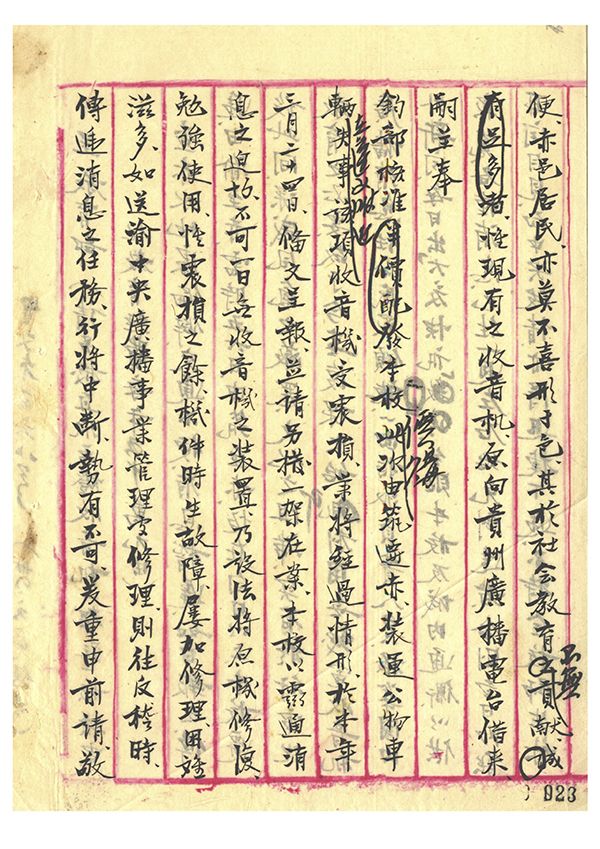 便、赤邑居民、亦莫不喜形于色、其於社会教育不無貢献、誠
有足多者、惟現有之收音机、原向貴州廣播電台借来、
嗣呈奉
鈞部核准半價配發本校、此次由筑遷赤、装運公物車
輛失事、該項收音機受震損、業將經過情形、於本年
三月二十四日、備文呈報、並請另撥一架在案、本校以靈通消
息之迫切、不可一日無收音機之装置、乃設法將原機修復、
勉強使用、惟震損之餘、機件時生故障、屢加修理、困難
滋多、如送渝中央廣播事業管理處修理、則往反稽時、
傳遞消息之任務、行將中斷、勢有不可、爰重申前請、敬
023